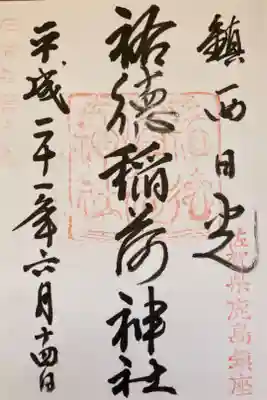 鎮西日光
祐徳稲荷神社
平成二十一年六月十四日
佐賀県鹿島鎮座